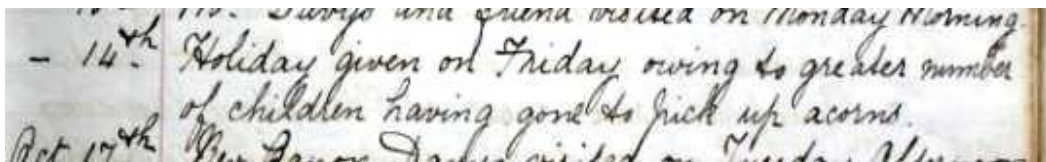 and friend visited on Monday Morning.
- 14th. Holiday given on Friday owing to greater number
of children having gone to pick up acorns.
Oct 17th Rev Canon visited on Tuesday Afternoon